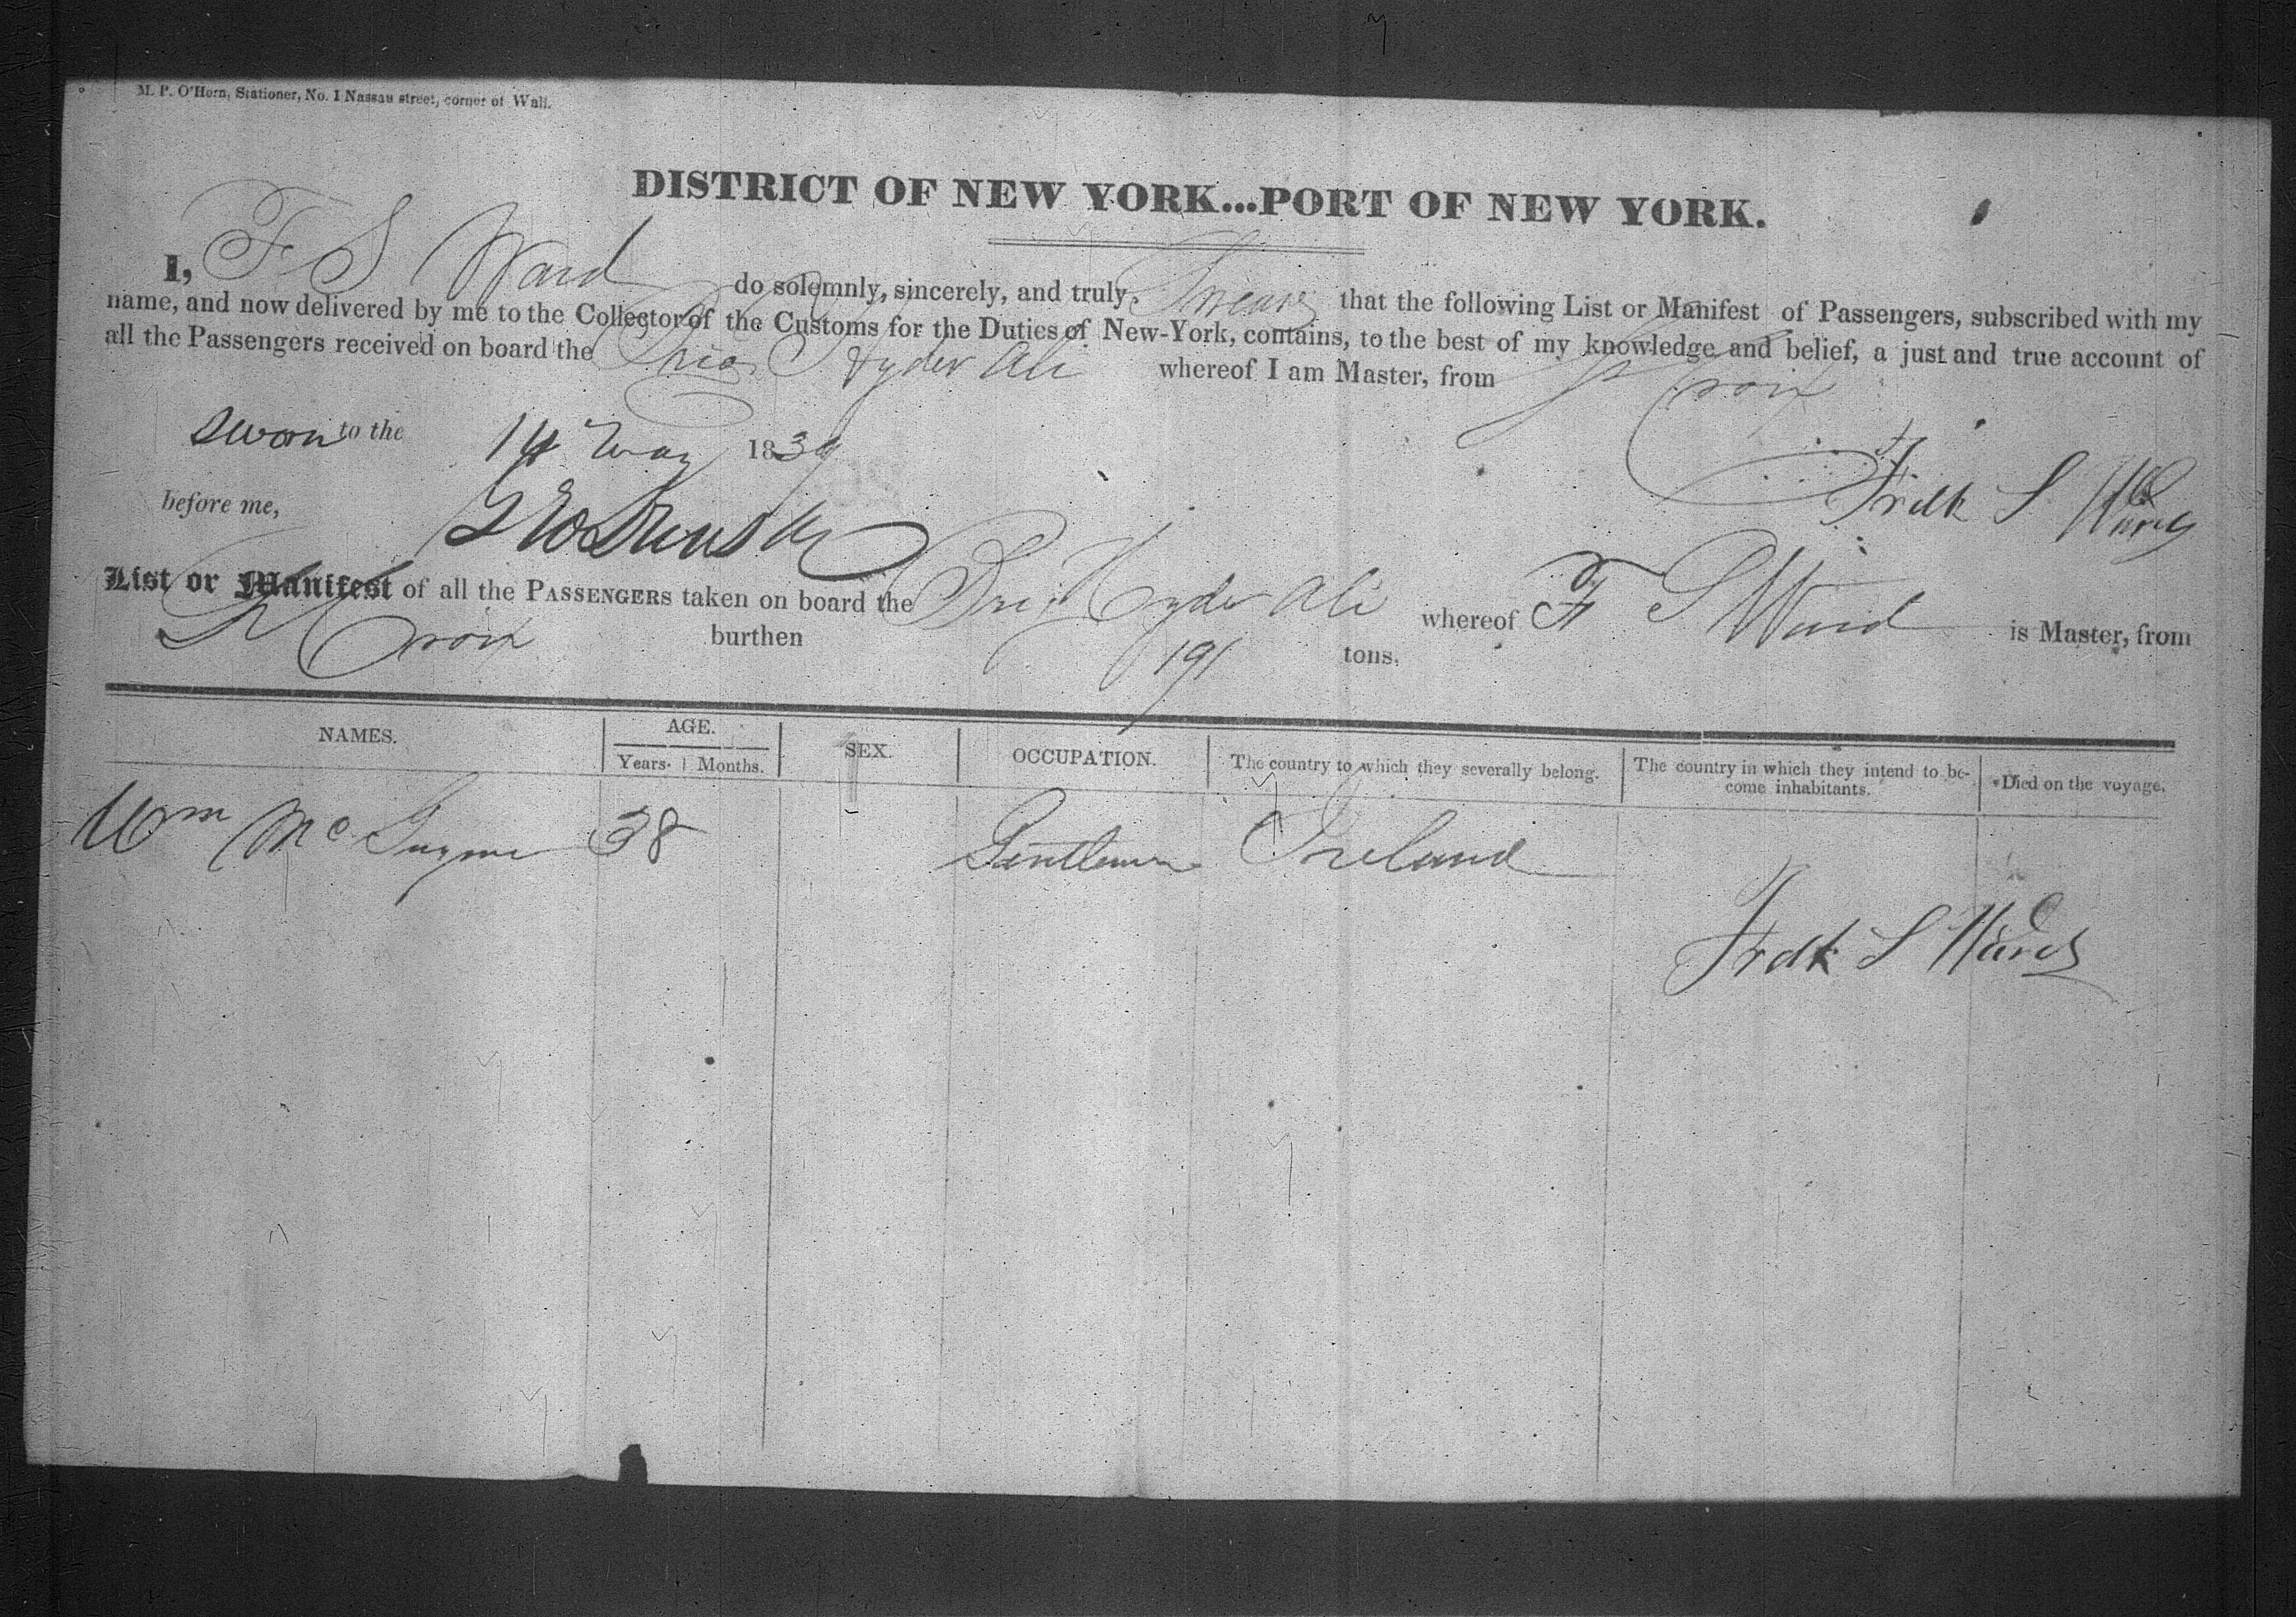 M. P. O'Horn, Stationer, No. 1 Nassau street, corner of Wall.
DISTRICT OF NEW YORK...PORT OF NEW YORK.
I, F S Ward do solemnly, sincerely, and truly, Swear that the following List or Manifest of Passengers, subscribed with my
name, and now delivered by me to the Collector of the Customs for the Duties of New-York, contains, to the best of my knowledge and belief, a just and true account of
all the Passengers received on board the Brig Hyder Ali whereof I am Master, from St Croix
Sworn to the 14 May 1839
Fredk S Ward
before me,
List or Manifest of all the PASSENGERS taken on board the Brig Hyder Ali whereof F S Ward is Master, from
St Croix burthen 191 tons.
NAMES. AGE. SEX. OCCUPATION. The country to which they severally belong. The country in which they intend to be- Died on the voyage.
Years. Months. come inhabitants.
Wm Mc 38 Gentleman Ireland
Fredk S Ward